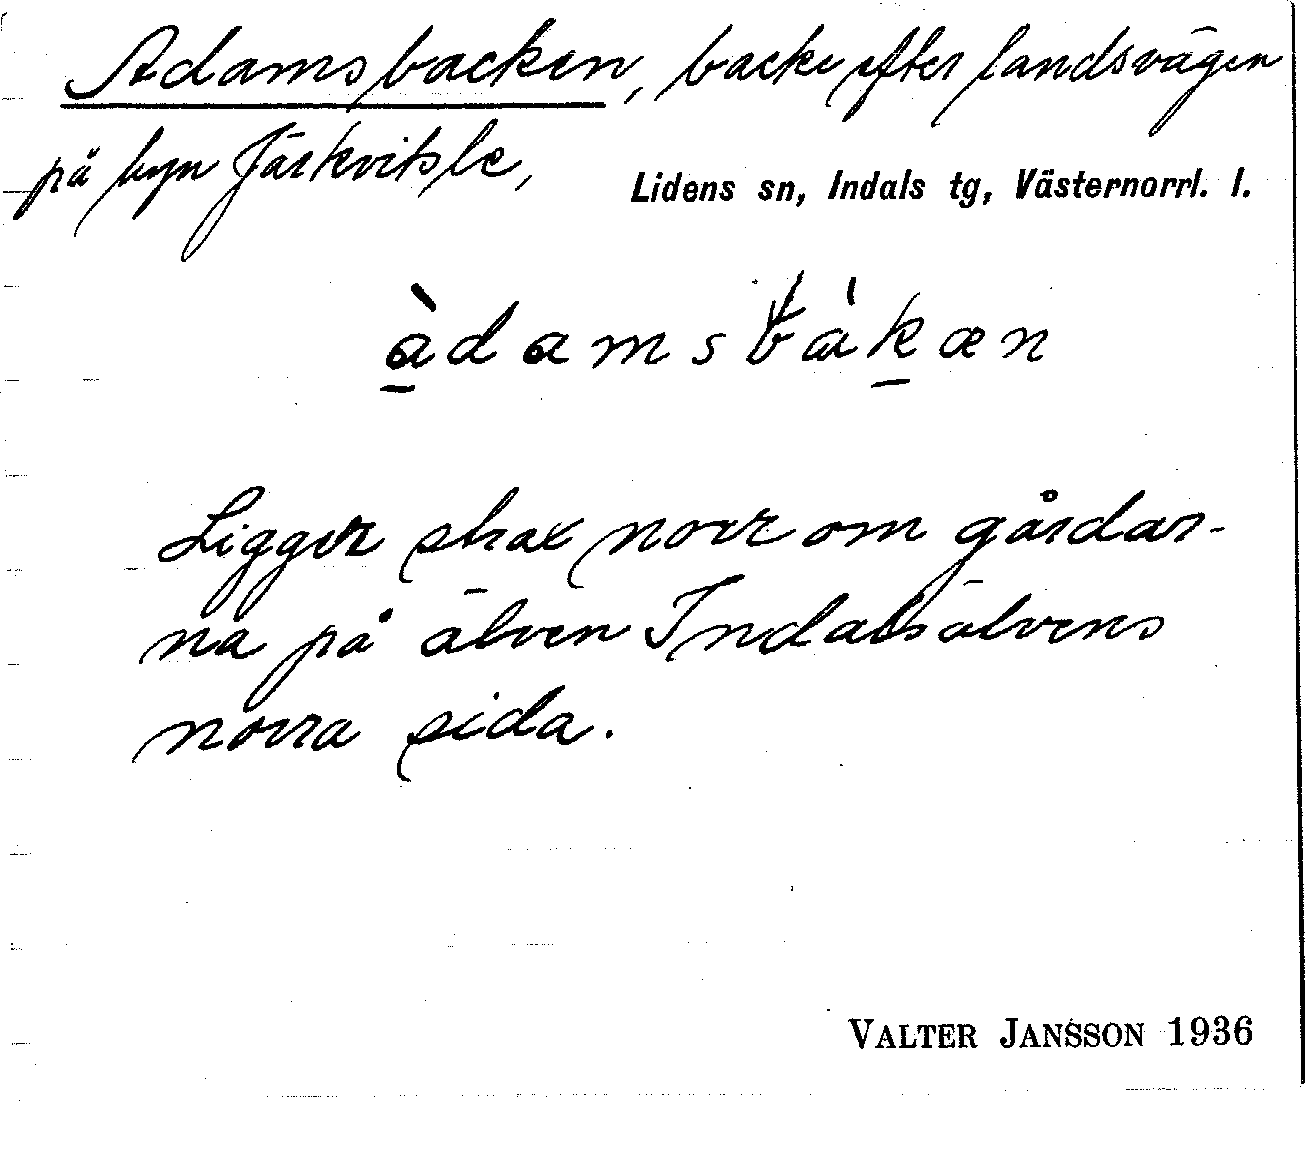 Adamsbacken, backe efter landsvägen
på byn Järkvitsle, Lidens sn, Indals tg, Västernorrl. l.
àdamsbàkæn
Ligger strax norr om gårdar-
na på älven Indalsälvens
norra sida.
VALTER JANSSON 1936